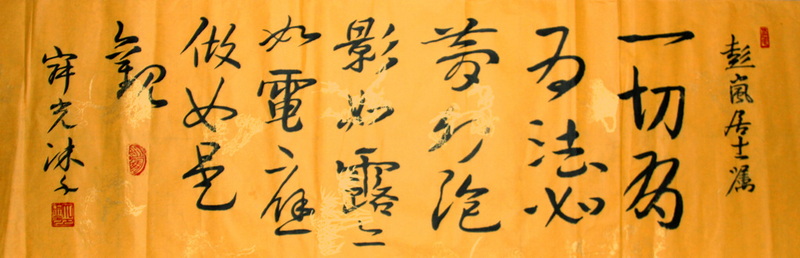 彭嵐居士嘱
一切有
为法如
夢幻泡
影如露亦
如電應
做如是
觀
光沐手